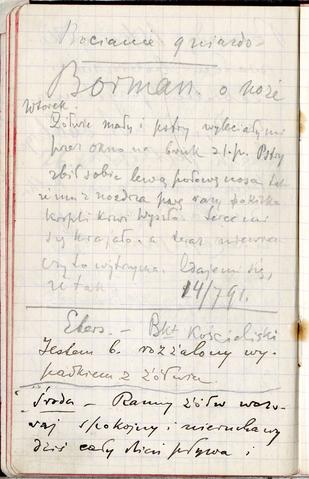 Bocianie gniazdo
Borman. o noże
Wtorek.
Żółwie mały i pstry wyleciały mi
przez okno na bruk z I. p. Pstry
zbił sobie lewą połowę nosa tak
że mu z nozdrza parę razy
kropli krwi wyszło. Serce mi
się krajało. a teraz niewiem
czy to wytrzyma. Zdaje mi się,
że tak 14/7 91.
Ebers. – Bkt Kościeliski
Jestem b. rozżalony wy-
padkiem z żółwiem.
Środa – Ranny żółw wczo-
raj spokojny i nieruchawy
dziś cały dzień pływa i